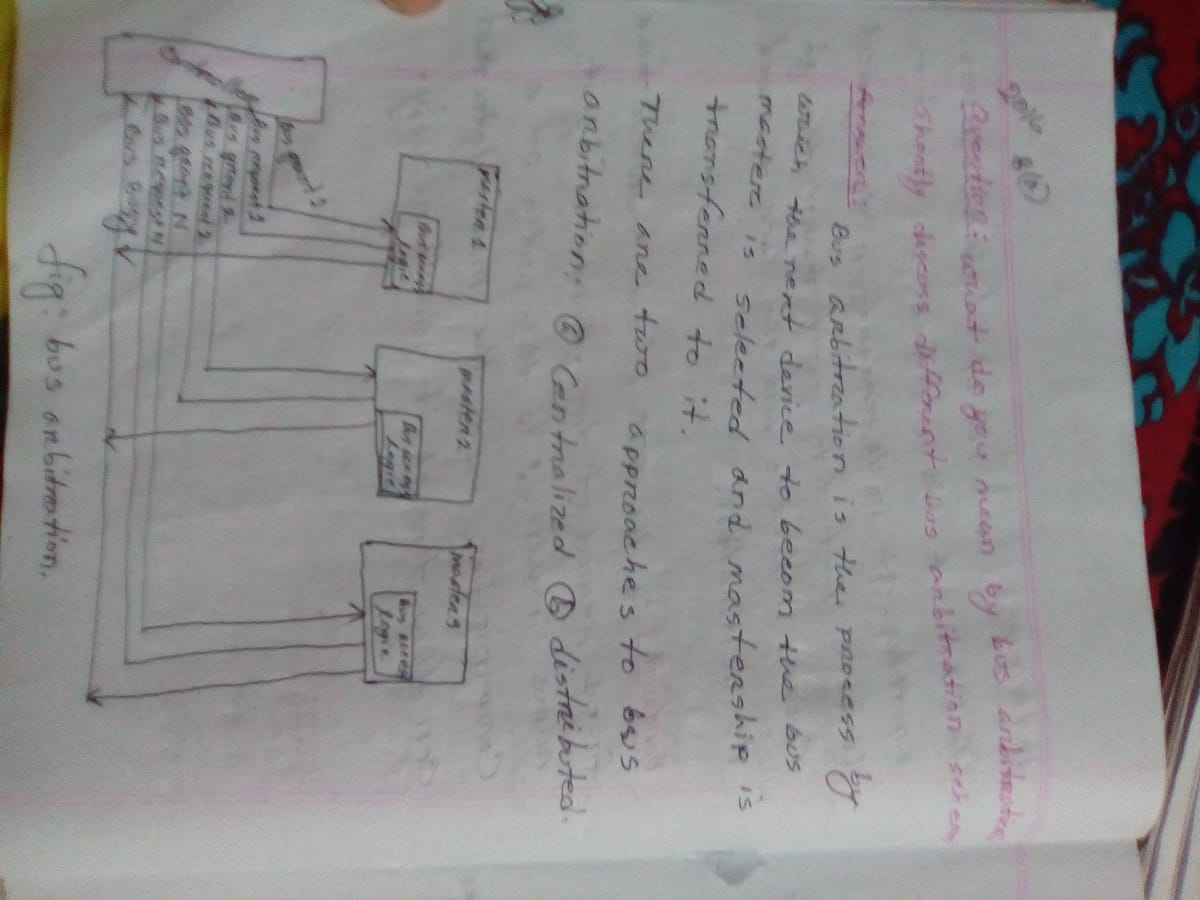 2016 8(a)
Question: what do you mean by bus arbitration
Shortly discuss different bus arbitration schem
Answer:
Bus arbitration is the process by
which the next device to becom the bus
master is selected and mastership is
transferred to it.
There are two approaches to bus
arbitration: (a) Centralized (b) distributed.
master 1
master 2
master 3
Bus access
Logic
Bus access
Logic
Bus access
Logic
Bus grant 1
Bus request 1
Bus grant 2
Bus request 2
Bus grant N
Bus request N
Bus Busy
fig: bus arbitration.